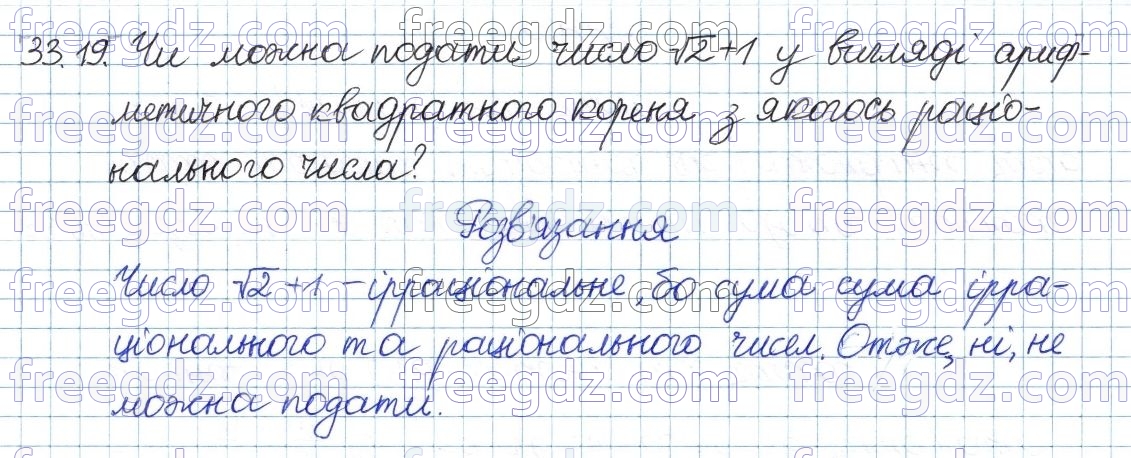 33.19. Чи можна подати число √2+1 у вигляді ариф-
метичного квадратного кореня з якогось раціо-
нального числа?
Розв'язання
Число √2+1 – ірраціональне, бо сума сума ірра-
ціонального та раціонального чисел. Отже, ні, не
можна подати.
freegdz.com